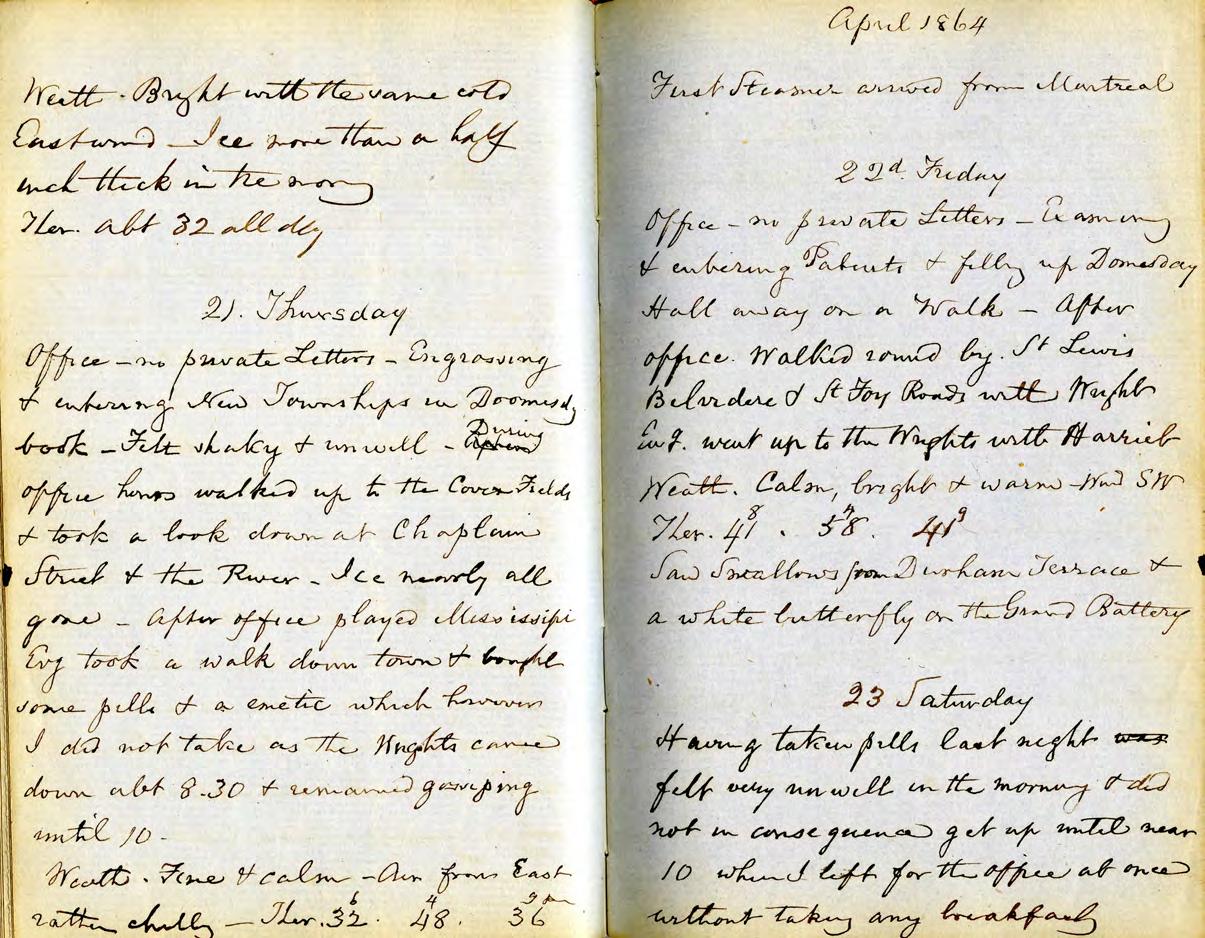 Weath. Bright with the same cold
East wind - Ice more than a half
inch thick in the morng
Ther. abt 32 all day
21. Thursday
Office - no private Letters - Engrossing
& entering New Townships in Doomesdy
book - Felt shaky & unwell - During
office hours walked up to the Cove Fields
& took a look down at Champlain
Street & the River - Ice nearly all
gone - After office played Mississipi
Evg took a walk down town & bought
some pills & a emetic which however
I did not take as the Wrights came
down abt 8.30 & remained gossiping
until 10 -
Weath. Fine & calm - Air from East
rather chilly - Ther. 32 6. 48 4. 36 9 pm
April 1864
First Steamer arrived from Montreal
22d. Friday
Office - no private Letters - Examing
& entering Patents & fillg up Domesday
Hall away on a Walk - After
office. Walked round by. St Lewis
Belvidere & St Foy Roads with Wright
Evg. went up to the Wrights with Harriet
Weath. Calm, bright & warm - Wind SW
Ther. 41 8. 58 4. 41 9
Saw Swallows from Durham Terrace &
a white butterfly on the Grand Battery
23 Saturday
Having taken pills last night was
felt very unwell in the morning & did
not in consequence get up until near
10 when I left for the office at once
without taking any breakfast